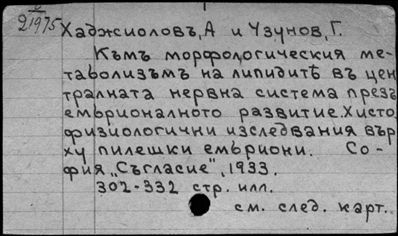 21975
Хаджиоловъ, А и Узунов, Г.
Къмъ морфологическия ме-
таболизъмъ на липидитѣ въ цен
тралната нервна система презъ
ембрионалното развитие. Хисто
физиологични изследвания вър
ху пилешки ембриони. Со-
фия, „Съгласие", 1933.
302-332 стр. илл.
см. след. карт.